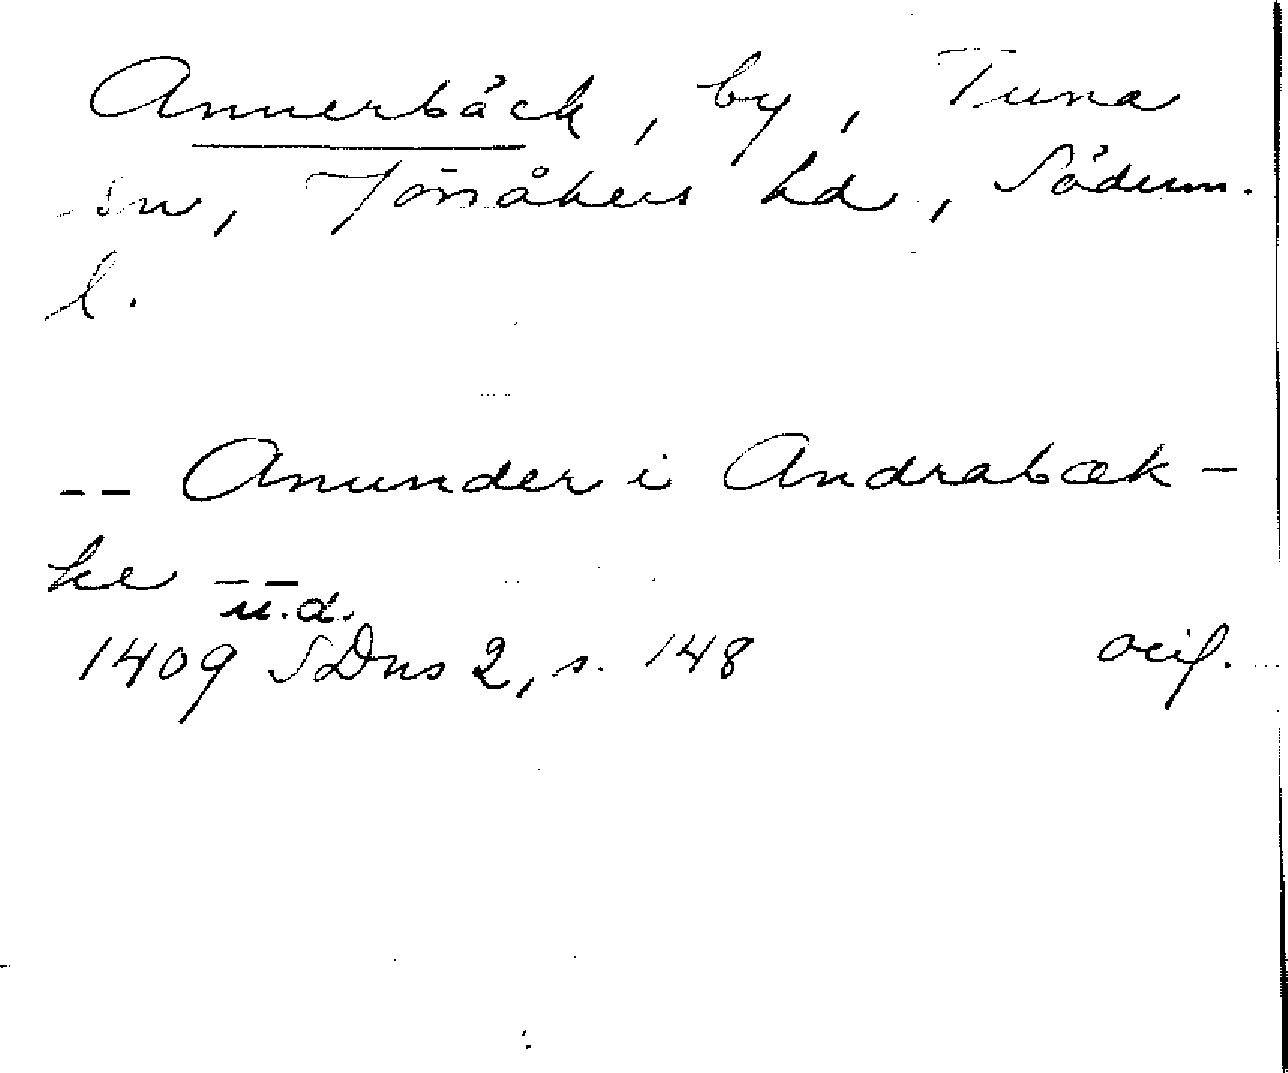 Annerbäck, by, Tuna
sn, Jönåkers hd, Söderm.
l.
-- Anunder i Andrabæk-
ke --
u.d.
1409 SDns 2, s. 148 orig.